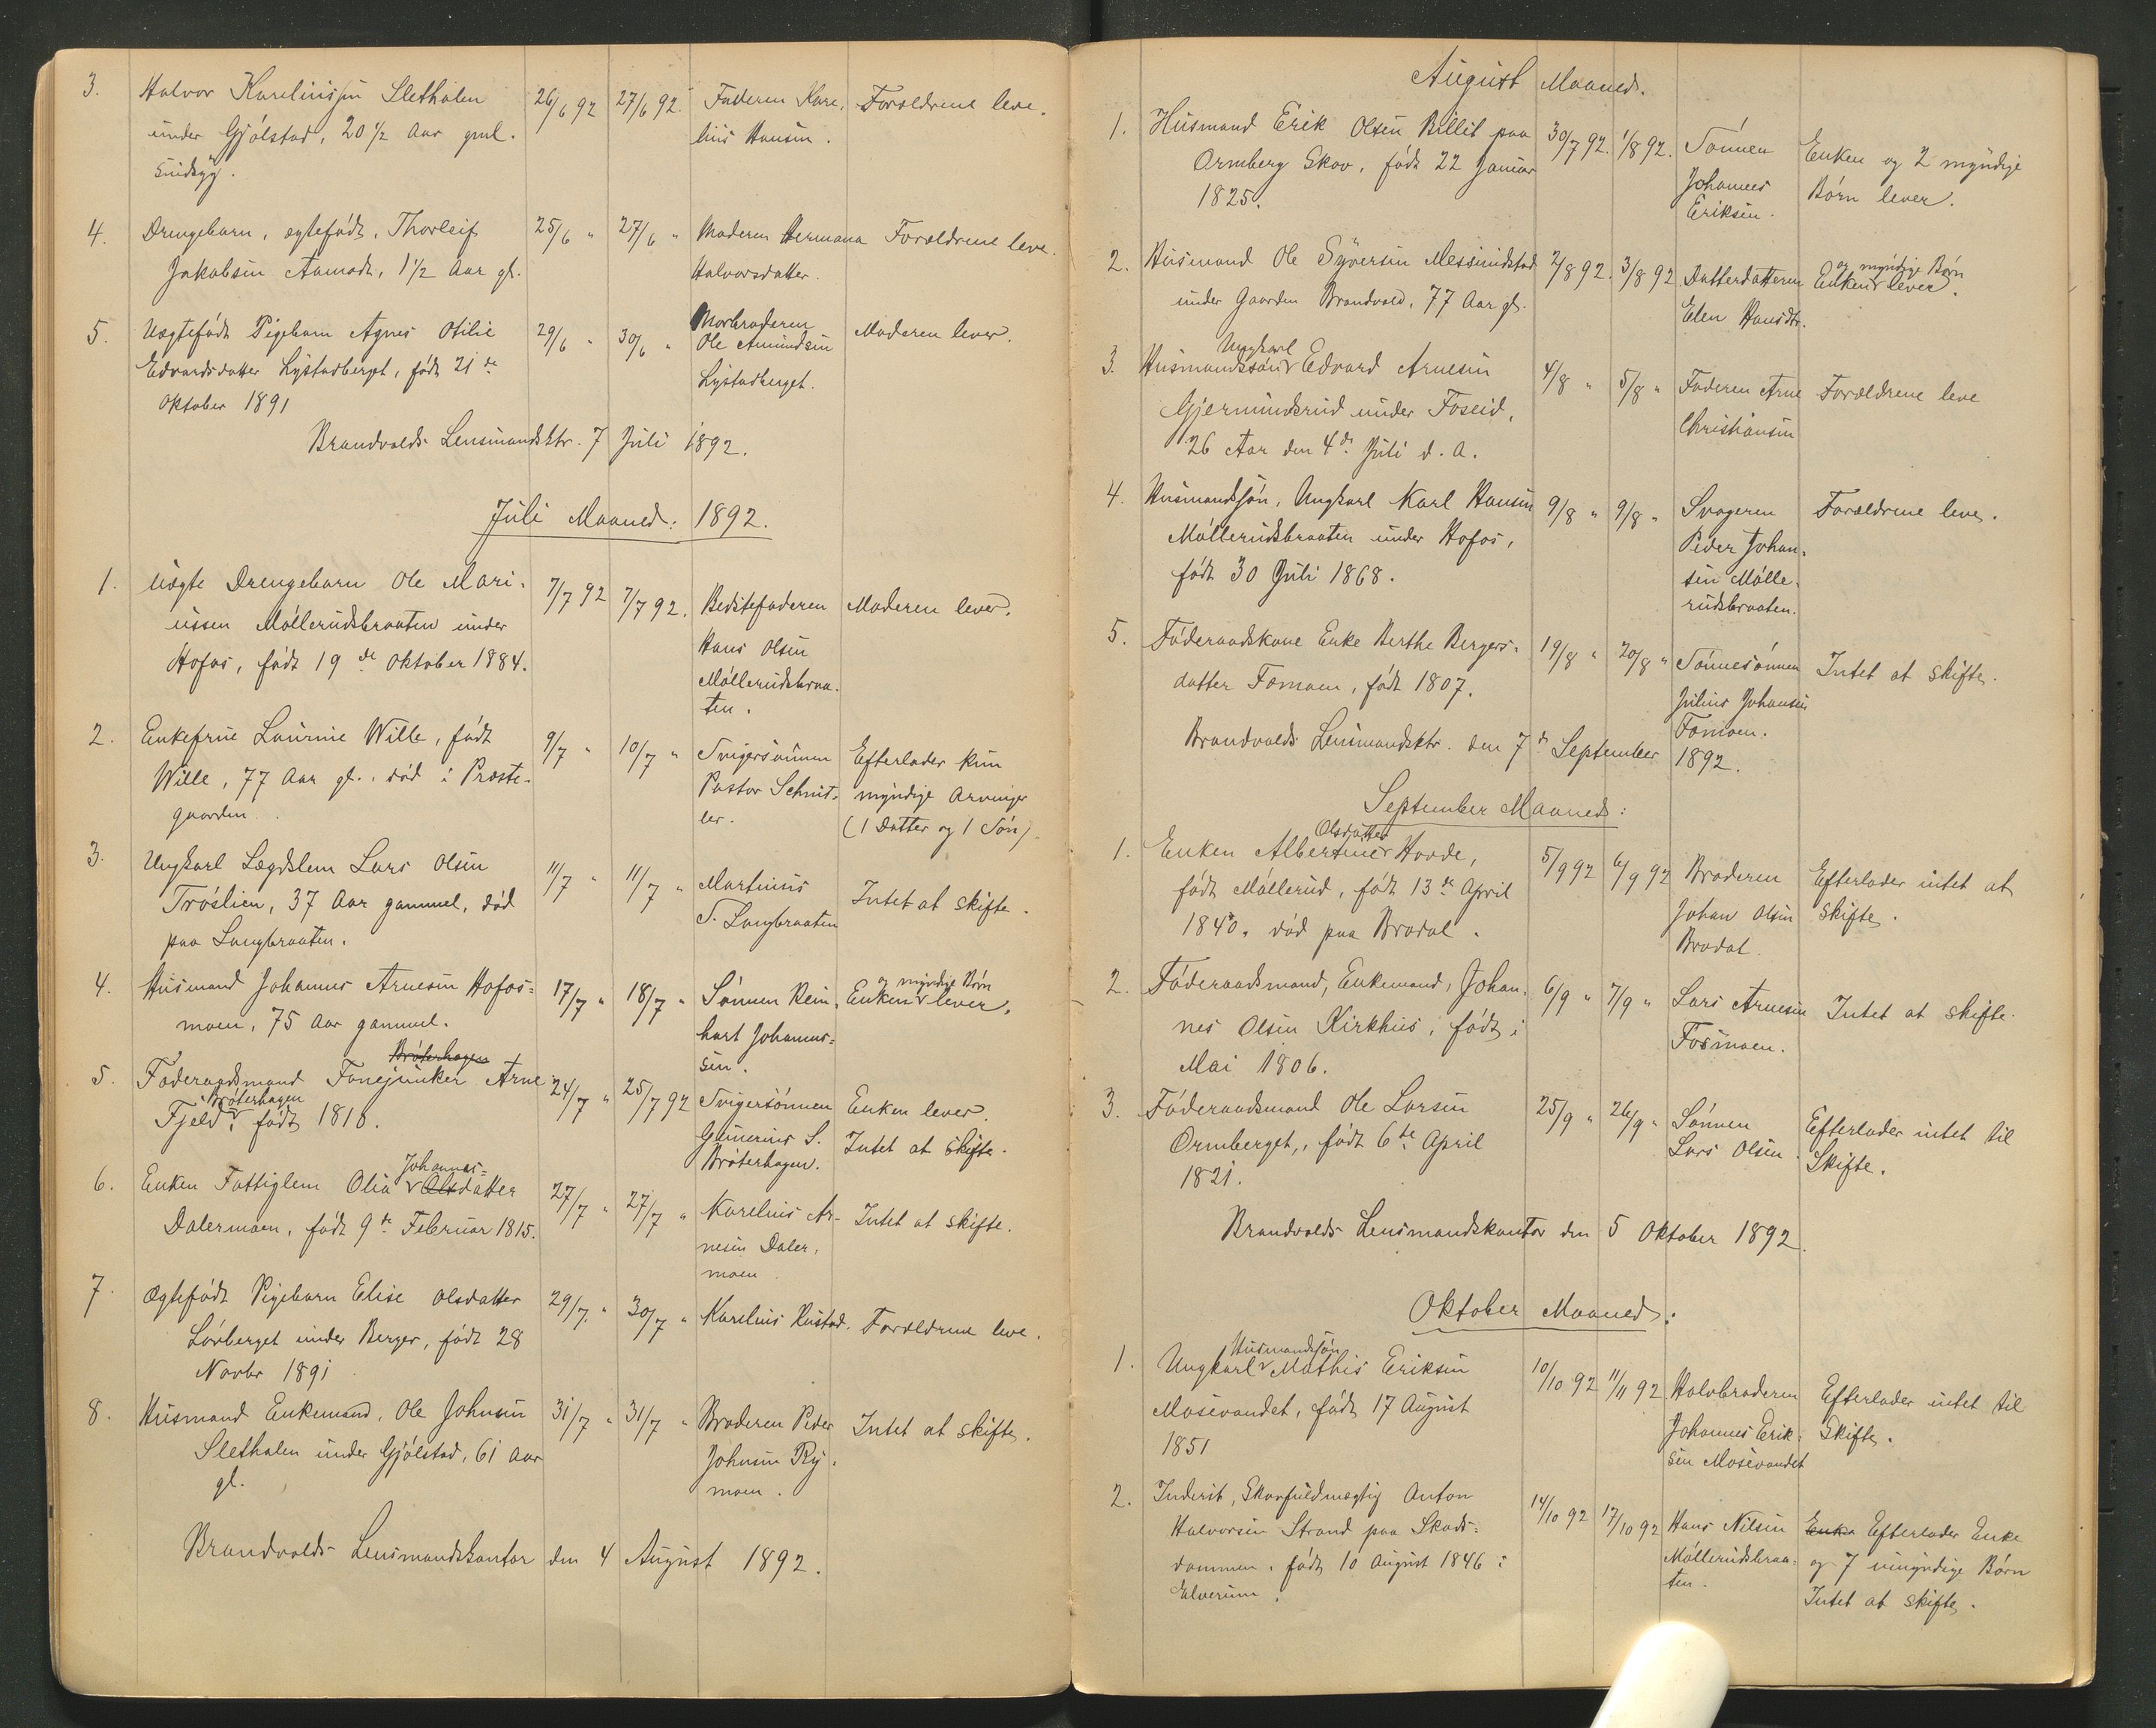 3. Halvor Karelinissen Slethalen 26/6 92 27/6 92. Faderen Kare- Forældrene leve.
under Gjølstad, 20 1/2 Aar gml. liis Hansen.
Sindsyg.
4. Drengebarn, ægtefødt, Thorleif 25/6 " 27/6 " Moderen Hermana Forældrene leve.
Jakobsen Aamodt, 1 1/2 Aar gl. Halvorsdatter.
5. Uægtefødt Pigebarn Agnes Otilie 29/6 " 30/6 " Morbroderen Moderen lever.
Edvardsdatter Lystadberget, født 21de Ole Amundsen
Oktober 1891 Lystadberget.
Brandvolds Lensmandsktr. 7 Juli 1892.
Juli Maaned: 1892.
1. Uægte Drengebarn Ole Mari- 7/7 92 7/7 92. Bedstefaderen Moderen lever.
ussen Møllerudsbraaten under Hans Olsen
Hofos, født 19de Oktober 1884. Møllerudsbraa-
ten.
2. Enkefrue Laurine Wille, født 9/7 " 10/7 " Svigersønnen Efterlader kun
Wille, 77 Aar gl., død i Præste- Pastor Schnit- myndige Arvinger
gaarden. ler. (1 Datter og 1 Søn).
3. Ungkarl Lægdslem Lars Olsen 11/7 " 11/7 " Martinus Intet at skifte.
Trøslien, 37 Aar gammel, død S. Langbraaten
paa Langbraaten.
4. Husmand Johannes Arnesen Hofos- 17/7 " 18/7 " Sønnen Rein- Enken og myndige Børn lever.
moen, 75 Aar gammel. hart Johannes-
sen.
5. Føderaadsmand Fanejunker Arne 24/7 " 25/7 92 Svigersønnen Enken lever.
Fjeld Brøterhagen, født 1810. Gunerius S. Intet at skifte.
Brøterhagen.
6. Enken Fattiglem Olia Johannes-datter 27/7 " 27/7 " Karelius Ar- Intet at skifte.
Dalermoen, født 9de Februar 1815. nesen Daler-
moen
7. Ægtefødt Pigebarn Elise Olsdatter 29/7. " 30/7 " Karelius Rustad. Forældrene leve.
Løvberget under Berger, født 28
Novbr 1891
8. Husmand Enkemand, Ole Johnsen 31/7 " 31/7 " Broderen Peder Intet at skifte.
Slethalen under Gjølstad, 61 Aar Johnsen Ry-
gl. moen.
Brandvolds Lensmandskontor den 4 August 1892.
August Maaned.
1. Husmand Erik Olsen Billit paa 30/7 92. 1/8 92. Sønnen Enken og 2 myndige
Ormberg Skov, født 22 Januar Johannes Børn lever.
1825. Eriksen.
2. Husmand Ole Syversen Messinidstad 2/8 92. 3/8 92 Datterdatteren Enken og myndige Børn lever.
under Gaarden Brandvold, 77 Aar gl. Elen Hansdtr.
3. Husmandssøn Ungkarl Edvard Arnesen 4/8 " 5/8 " Faderen Arne Forældrene leve
Gjermundsrud under Foseid, Christiansen
26 Aar den 4de Juli d. A.
4. Husmandssøn, Ungkarl Karl Hansen 9/8 " 9/8 " Svogeren Forældrene leve.
Møllerudsbraaten under Hofos, Peder Johan-
født 30 Juli 1868. sen Mølle-
rudsbraaten.
5. Føderaadskone Enke Berthe Bergers- 19/8 " 20/8 " Sønnesønnen Intet at skifte.
datter Fomoen, født 1807. Julius Johansen
Fomoen.
Brandvolds Lensmandsktr. den 7de September 1892.
September Maaned:
1. Enken Albertine Olsdatter Hovde, 5/9 92 6/9 92 Broderen Efterlader intet at
født Møllerud, født 13de April Johan Olsen skifte.
1840. død paa Brodal. Brodal.
2. Føderaadsmand, Enkemand, Johan- 6/9 " 7/9 " Lars Arnesen Intet at skifte.
nes Olsen Kirkhus, født i Fosmoen.
Mai 1806.
3. Føderaadsmand Ole Larsen 25/9 " 26/9 " Sønnen Efterlader intet til
Ormberget, født 6te April Lars Olsen. Skifte.
1821.
Brandvolds Lensmandskontor den 5 Oktober 1892.
Oktober Maaned.
1. Ungkarl Husmandssøn Mathis Eriksen 10/10 92 11/11 92 Halvbroderen Efterlader intet til
Mosevandet, født 17 August Johannes Erik- Skifte.
1851 sen Mosevandet
2. Inderst, Skovfuldmægtig Anton 14/10 92 17/10 92 Hans Nilsen Enke Efterlader Enke
Halvorsen Strand paa Skads- Møllerudsbraa- og 7 umyndige Børn
dammen, født 10 August 1846 i ten. Intet at skifte.
Elverum.